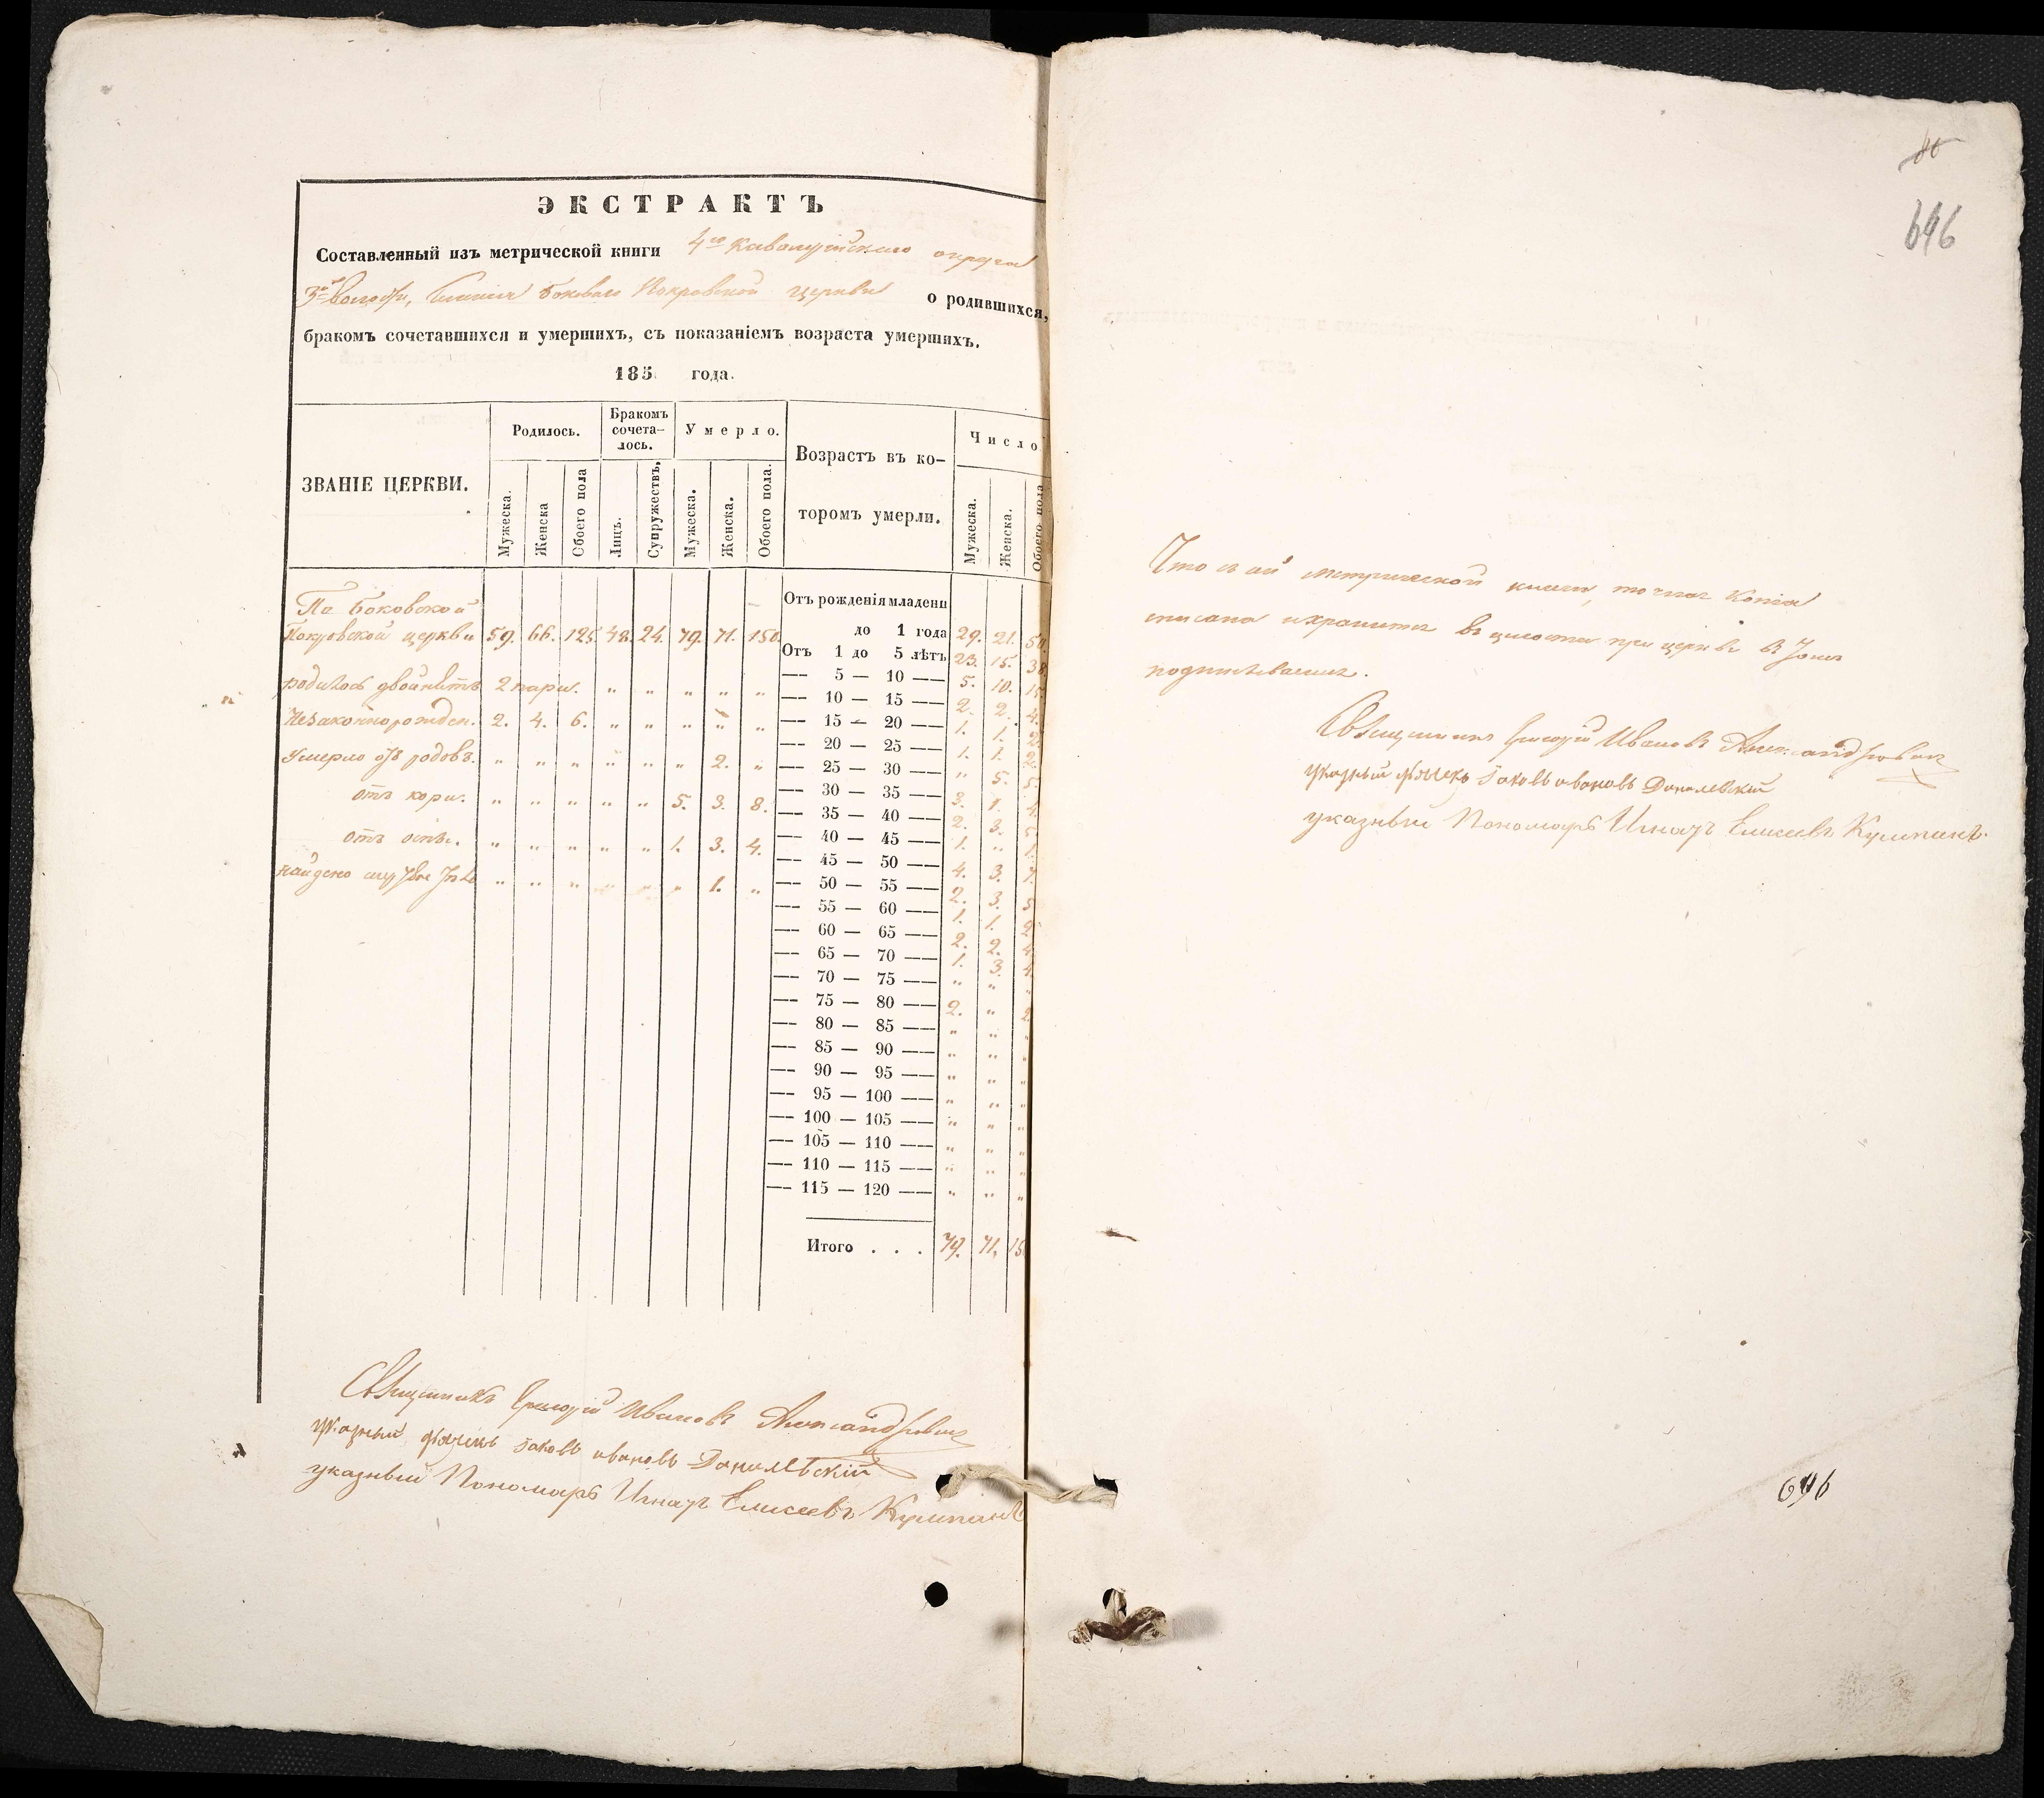 ЭКСТРАКТЪ
Составленный изъ метрической книги 4го Кавалерійскаго округа
3й Волости, Боковаго Покровской церкви о родившихся,
бракомъ сочетавшихся и умершихъ, съ показаніемъ возраста умершихъ.
185 года.
ЗВАНІЕ ЦЕРКВИ. Родилось. Бракомъ сочета- лось. Умерло. Возрастъ въ ко- торомъ умерли. Число
Мужеска. Женска Обоего пола Лицъ. Супружествъ. Мужеска. Женска. Обоего пола. Мужеска. Женска. Обоего пола
По Боковской
Покровской церкви 59. 66. 125. 48. 24. 79. 71. 150.
родилось двойнятъ 2 пары. " " " " "
Незаконнорожден. 2. 4. 6. " " " " "
Умерло отъ родовъ. " " " " " " 2. "
отъ кори. " " " " " 5. 3. 8.
отъ оспы. " " " " " 1. 3. 4.
найдено " " " " " " 1. "
Отъ рожденія младенц
до 1 года 29. 21. 50.
Отъ 1 до 5 лѣтъ 23. 15. 38
— 5 — 10 — 5. 10. 15
— 10 — 15 — 2. 2. 4.
— 15 — 20 — 1. 1. 2.
— 20 — 25 — 1. 1. 2.
— 25 — 30 — " 5. 5.
— 30 — 35 — 3. 1. 4
— 35 — 40 — 2. 3. 5
— 40 — 45 — 1. " 1.
— 45 — 50 — 4. 3. 7.
— 50 — 55 — 2. 3. 5
— 55 — 60 — 1. 1. 2
— 60 — 65 — 2. 2. 4
— 65 — 70 — 1. 3. 4
— 70 — 75 — " " "
— 75 — 80 — 2. " 2
— 80 — 85 — " " "
— 85 — 90 — " " "
— 90 — 95 — " " "
— 95 — 100 — " " "
— 100 — 105 — " " "
— 105 — 110 — " " "
— 110 — 115 — " " "
— 115 — 120 — " " "
Итого . . . 79. 71. 15
Священникъ Григорій Ивановъ Александровичъ
указный дьячекъ Іаковъ Ивановъ Данилевскій
указный Пономарь Игнатъ Елисеевъ Кулпанъ
696
Что съ сей метрической книги, точная Копія
списана и хранится въ цѣлости при церкви въ томъ
подписываемся.
Священникъ Григорій Ивановъ Александровичъ
указный дьячекъ Іаковъ Ивановъ Данилевскій
указный Пономарь Игнатъ Елисеевъ Кулпанъ.
696